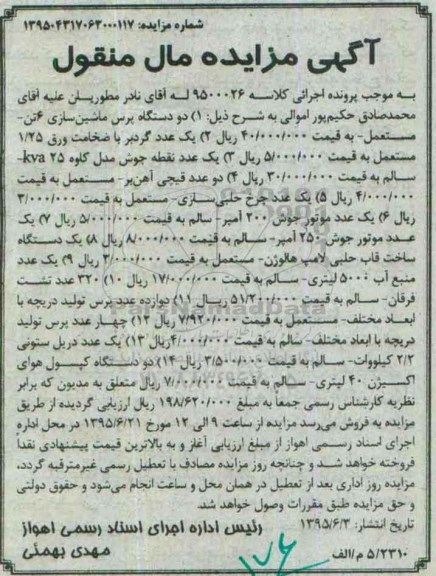 شماره مزایده: ۱۳۹۵۰۴۳۱۷۰۶۳۰۰۰۱۱۷
آگهی مزایده مال منقول
به موجب پرونده اجرائی کلاسه ۹۵۰۰۰۲۶ له آقای نادر مطوریان علیه آقای
محمدصادق حکیم‌پور اموالی به شرح ذیل: ۱) دو دستگاه پرس ماشین‌سازی ۶تن-
مستعمل- به قیمت ۴۰/۰۰۰/۰۰۰ ریال ۲) یک عدد گردبر با ضخامت ورق ۱/۲۵
مستعمل به قیمت ۵/۰۰۰/۰۰۰ ریال ۳) یک عدد نقطه جوش مدل کاوه ۲۵ kva-
سالم به قیمت ۳۰/۰۰۰/۰۰۰ ریال ۴) دو عدد قیچی آهن‌بر- مستعمل به قیمت
۴/۰۰۰/۰۰۰ ریال ۵) یک عدد چرخ حلبی‌سازی- مستعمل به قیمت ۳/۰۰۰/۰۰۰
ریال ۶) یک عدد موتور جوش ۲۰۰ آمپر- سالم به قیمت ۵/۰۰۰/۰۰۰ ریال ۷) یک
عدد موتور جوش ۲۵۰ آمپر- سالم به قیمت ۸/۰۰۰/۰۰۰ ریال ۸) یک دستگاه
ساخت قاب حلبی لامپ هالوژن- مستعمل به قیمت ۳/۰۰۰/۰۰۰ ریال ۹) یک عدد
منبع آب ۵۰۰ لیتری- سالم به قیمت ۱۷/۰۰۰/۰۰۰ ریال ۱۰) ۳۲۰ عدد تشت
فرقان- سالم به قیمت ۵۱/۲۰۰/۰۰۰ ریال ۱۱) دوازده عدد پرس تولید دریچه با
ابعاد مختلف- مستعمل به قیمت ۷/۹۲۰/۰۰۰ ریال ۱۲) چهار عدد پرس تولید
دریچه با ابعاد مختلف- سالم به قیمت ۴/۰۰۰/۰۰۰ریال ۱۳) یک عدد دریل ستونی
۲/۲ کیلووات- سالم به قیمت ۳/۵۰۰/۰۰۰ ریال ۱۴) دو دستگاه کپسول هوای
اکسیژن ۴۰ لیتری- سالم به قیمت ۷/۰۰۰/۰۰۰ ریال متعلق به مدیون که برابر
نظریه کارشناس رسمی جمعاً به مبلغ ۱۹۸/۶۲۰/۰۰۰ ریال ارزیابی گردیده از طریق
مزایده به فروش می‌رسد مزایده از ساعت ۹ الی ۱۲ مورخ ۱۳۹۵/۶/۲۱ در محل اداره
اجرای اسناد رسمی اهواز از مبلغ ارزیابی آغاز و به بالاترین قیمت پیشنهادی نقداً
فروخته خواهد شد و چنانچه روز مزایده مصادف با تعطیل رسمی غیرمترقبه گردد،
مزایده روز اداری بعد از تعطیل در همان محل و ساعت انجام می‌شود و حقوق دولتی
و حق مزایده طبق مقررات وصول خواهد شد.
تاریخ انتشار: ۱۳۹۵/۶/۳
رئیس اداره اجرای اسناد رسمی اهواز
مهدی بهمئی
۵/۲۳۱۰ م/الف
۱۷۶